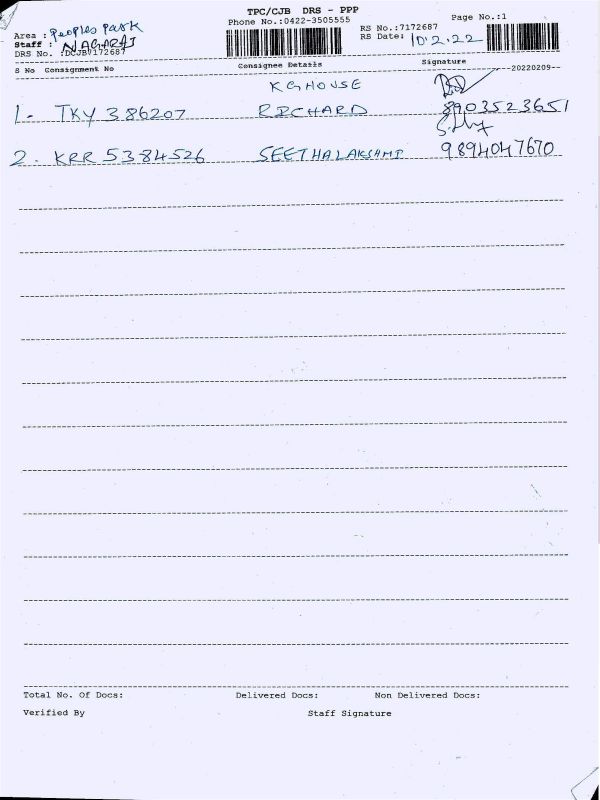 TPC/CJB DRS - PPP
Phone No.:0422-3505555
Page No.:1
Area : Peoples Park
RS No.:7172687
Staff : NAGARAJ
RS Date: 10.2.22
DRS No. :DCJB7172687
S No Consignment No Consignee Details Signature --20220209--
KG HOUSE
1. TKY 386207 RICHARD 8903523651
2. KRR 5384526 SEETHALAKSHMI 9894047670
Total No. Of Docs: Delivered Docs: Non Delivered Docs:
Verified By Staff Signature